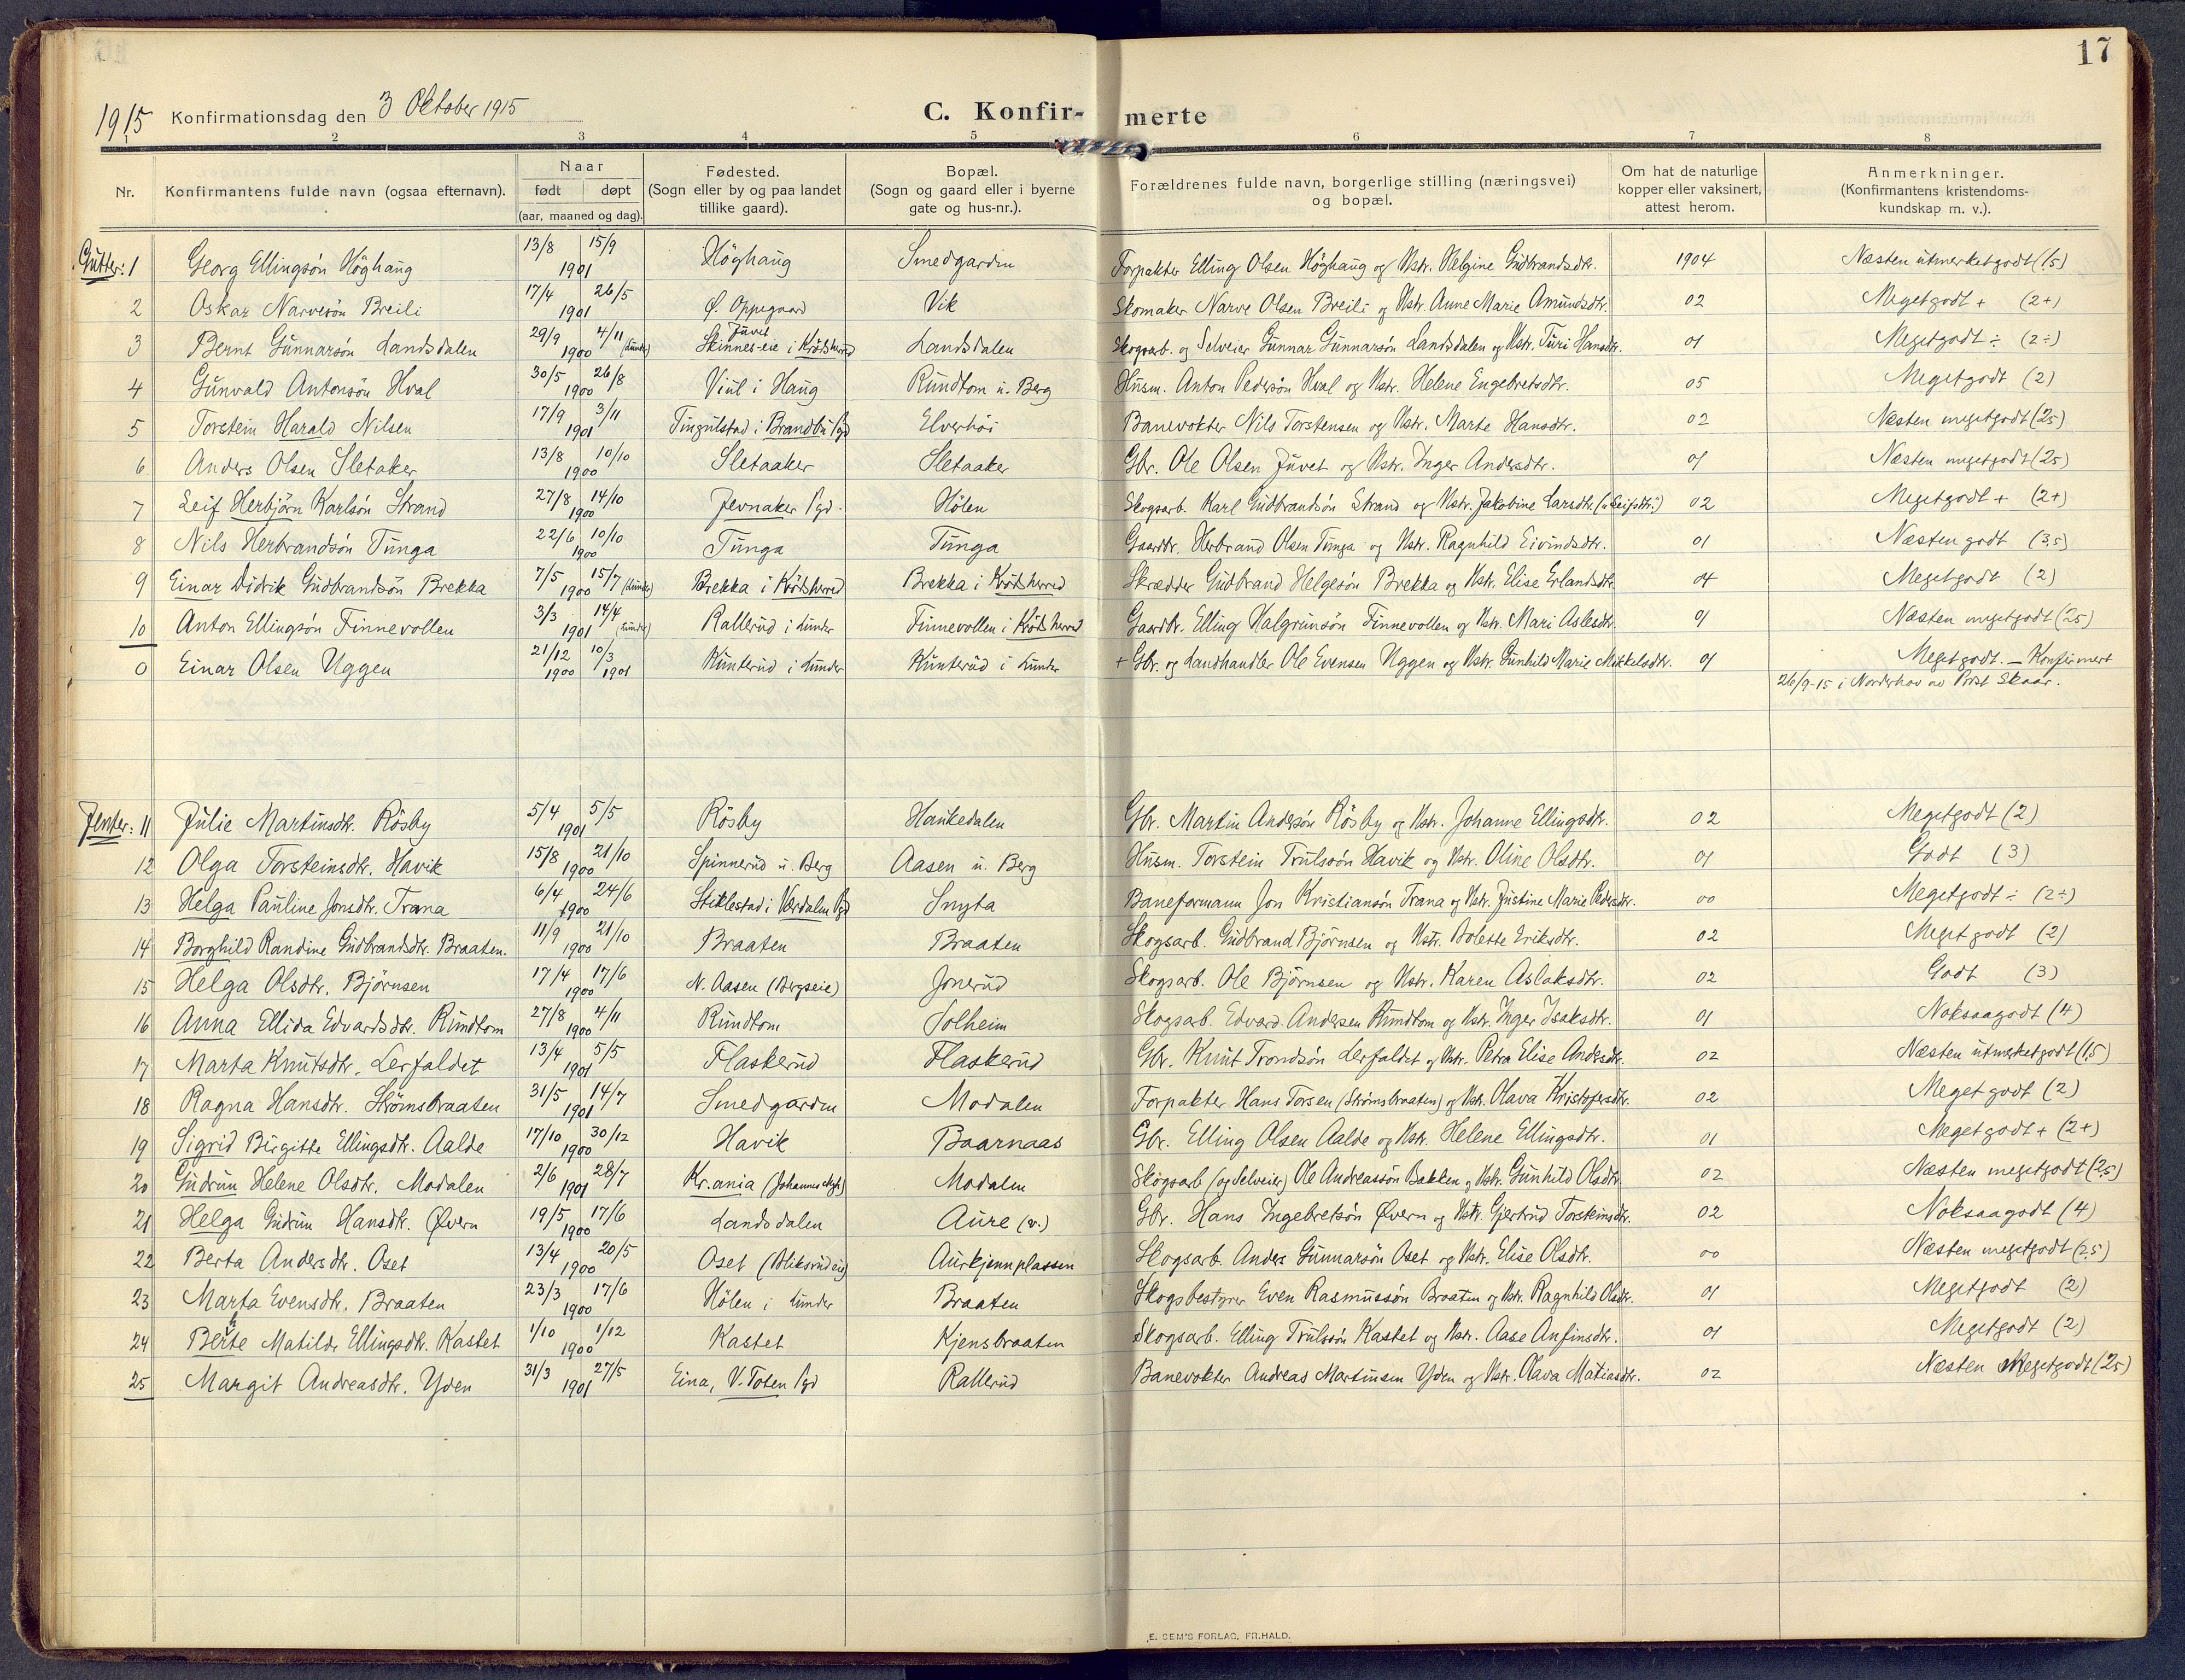 17
1915 Konfirmationsdag den 3 Oktober 1915 C. Konfir- merte
1 2 3 4 5 6 7 8
Nr. Konfirmantens fulde navn (ogsaa efternavn). Naar født døpt (aar, maaned og dag). Fødested. (Sogn eller by og paa landet tillike gaard). Bopæl. (Sogn og gaard eller i byerne gate og hus-nr.). Forældrenes fulde navn, borgerlige stilling (næringsvei) og bopæl. Om hat de naturlige kopper eller vaksinert, attest herom. Anmerkninger. (Konfirmantens kristendoms-kundskap m. v.).
Gutter: 1 Georg Ellingsön Höghaug 13/8 15/9 1901 Höghaug Smedgarden Forpakter Elling Olsen Höghaug og Hstr. Helgine Gudbrandsdtr. 1904 Næsten utmerketgodt (1,5)
2 Oskar Narvesön Breili 17/4 26/5 1901 Ø. Oppegaard Vik Skomaker Narve Olsen Breili og Hstr. Anne Marie Amundsdtr. 02 Megetgodt + (2+)
3 Bernt Gunnarsön Landsdalen 29/9 4/11 1900 (Lunder) Juvet Skinnes-eie i Krödsherred Landsdalen Skogsarb. og Selveier Gunnar Gunnarsön Landsdalen og Hstr. Turi Hansdtr. 01 Megetgodt ÷ (2÷)
4 Gunvald Antonsön Hval 30/5 26/8 1900 Viul i Haug Rundtom u. Berg Husm. Anton Pedersön Hval og Hstr. Helene Engebretsdtr. 05 Megetgodt (2)
5 Torstein Harald Nilsen 17/9 3/11 1901 Tingulstad i Brandbu Pgd Elverhöi Banevokter Nils Torstensen og Hstr. Marte Hansdtr. 02 Næsten megetgodt (2,5)
6 Anders Olsen Sletaker 13/8 10/10 1900 Sletaaker Sletaaker Gbr. Ole Olsen Juvet og Hstr. Inger Andersdtr. 01 Næsten megetgodt (2,5)
7 Leif Herbjörn Karlsön Strand 27/8 14/10 1900 Jevnaker Pgd. Hölen Skogsarb. Karl Gudbrandsön Strand og Hstr. Jakobine Larsdtr. („Leifsdtr.") 02 Megetgodt + (2+)
8 Nils Herbrandsön Tunga 22/6 10/10 1900 Tunga Tunga Gaardbr. Herbrand Olsen Tunga og Hstr. Ragnhild Eivindsdtr. 01 Næsten godt (3,5)
9 Einar Didrik Gudbrandsön Brekka 7/5 15/7 1900 (Lunder) Brekka i Krödsherred Brekka i Krödsherred Skrædder Gudbrand Helgesön Brekka og Hstr. Elise Erlandsdtr. 04 Megetgodt (2)
10 Anton Ellingsön Finnevollen 3/3 14/4 1901 (Lunder) Rallerud i Lunder Finnevollen i Kröds herred Gaardbr. Elling Halgrimsön Finnevollen og Hstr. Mari Aslesdtr. 01 Næsten megetgodt (2,5)
0 Einar Olsen Uggen 21/12 1900 10/3 1901 Kunterud i Lunder Kunterud i Lunder + Gbr. og Landhandler Ole Evensen Uggen og Hstr. Gunhild Marie Mikkelsdtr. 01 Megetgodt. — Konfirmert
26/9-15 i Norderhov av Prost Skaar.
Jenter: 11 Julie Martinsdtr. Rösby 5/4 5/5 1901 Rösby Haukedalen Gbr. Martin Andersön Rösby og Hstr. Johanne Ellingsdtr. 02 Megetgodt (2)
12 Olga Torsteinsdtr. Havik 15/8 21/10 1900 Spinnerud u. Berg Aasen u. Berg Husm. Torstein Trulssön Havik og Hstr. Oline Olsdtr. 01 Godt (3)
13 Helga Pauline Jonsdtr. Trana 6/4 24/6 1900 Stiklestad i Verdalen Pgd Snyta Baneformann Jon Kristiansön Trana og Hstr. Justine Marie Pedersdtr. 00 Megetgodt ÷ (2÷)
14 Borghild Randine Gudbrandsdtr. Braaten. 11/9 21/10 1900 Braaten Braaten Skogsarb. Gudbrand Björnsen og Hstr. Bolette Eriksdtr. 02 Megetgodt (2)
15 Helga Olsdtr. Björnsen 17/4 17/6 1900 N. Aasen (Bergseie) Jonerud Skogsarb. Ole Björnsen og Hstr. Karen Aslaksdtr. 02 Godt (3)
16 Anna Ellida Edvardsdtr. Rundtom 27/8 4/11 1900 Rundtom Solheim Skogsarb. Edvard Andersen Rundtom og Hstr. Inger Isaksdtr. 01 Noksaagodt (4)
17 Marta Knutsdtr. Lerfaldet 13/4 5/5 1901 Flaskerud Flaskerud Gbr. Knut Trondsön Lerfaldet og Hstr. Petra Elise Andersdtr. 02 Næsten utmerketgodt (1,5)
18 Ragna Hansdtr. Strömsbraaten 31/5 14/7 1901 Smedgarden Modalen Forpakter Hans Torsen (Strömsbraaten) og Hstr. Olava Kristofersdtr. 02 Meget godt (2)
19 Sigrid Birgitte Ellingsdtr. Aalde 17/10 30/12 1900 Havik Baarnaas Gbr. Elling Olsen Aalde og Hstr. Helene Ellingsdtr. 01 Megetgodt + (2+)
20 Gudrun Helene Olsdtr. Modalen 2/6 28/7 1901 Kr.ania (Johannes Mgh.) Modalen Skogsarb (og Selveier) Ole Andreassön Bakken og Hstr. Gunhild Olsdtr. 02 Næsten megetgodt (2,5)
21 Helga Gudrun Hansdtr. Øvern 19/5 17/6 1900 Landsdalen Aure (v.) Gbr. Hans Ingebretsön Øvern og Hstr. Gjertrud Torsteinsdtr. 02 Noksaagodt (4)
22 Berta Andersdtr. Oset 13/4 20/5 1900 Oset (Bliksrudeie) Aurkjennplassen Skogsarb. Anders Gunnarsön Oset og Hstr. Elise Olsdtr. 00 Næsten megetgodt (2,5)
23 Marta Evensdtr. Braaten 23/3 17/6 1900 Hölen i Lunder Braaten Skogsbestyrer Even Rasmussön Braaten og Hstr. Ragnhild Olsdtr. 01 Megetgodt (2)
24 Berte Matilde Ellingsdtr. Kastet 1/10 1/12 1900 Kastet Kjensbraaten Skogsarb. Elling Trulssön Kastet og Hstr. Aase Anfinsdtr. 01 Megetgodt (2)
25 Margit Andreasdtr. Yden 31/3 27/5 1901 Eina, V. Toten Pgd Rallerud Banevokter Andreas Martinsen Yden og Hstr. Olava Matiasdtr. 02 Næsten Megetgodt (2,5)
E. SEM'S FORLAG, FR.HALD.